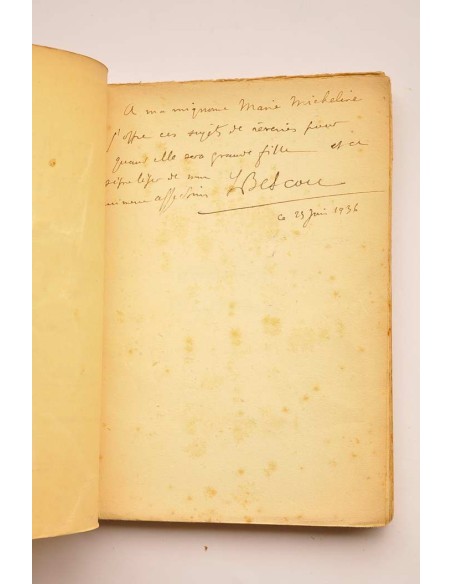 A ma mignonne Marie Micheline
J'offre ces sujets de rêveries pour
quand elle sera grande fille et ce
léger de mon
affection
ce 23 Juin 1936